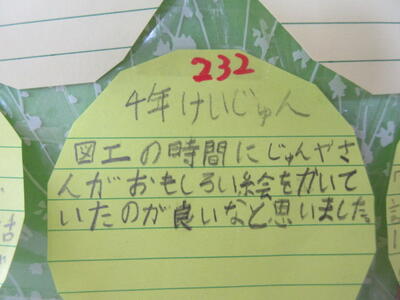 232
4年けいじゅん
図工の時間にじゅんやさ
んがおもしろい絵をかいて
いたのが良いなと思いました。